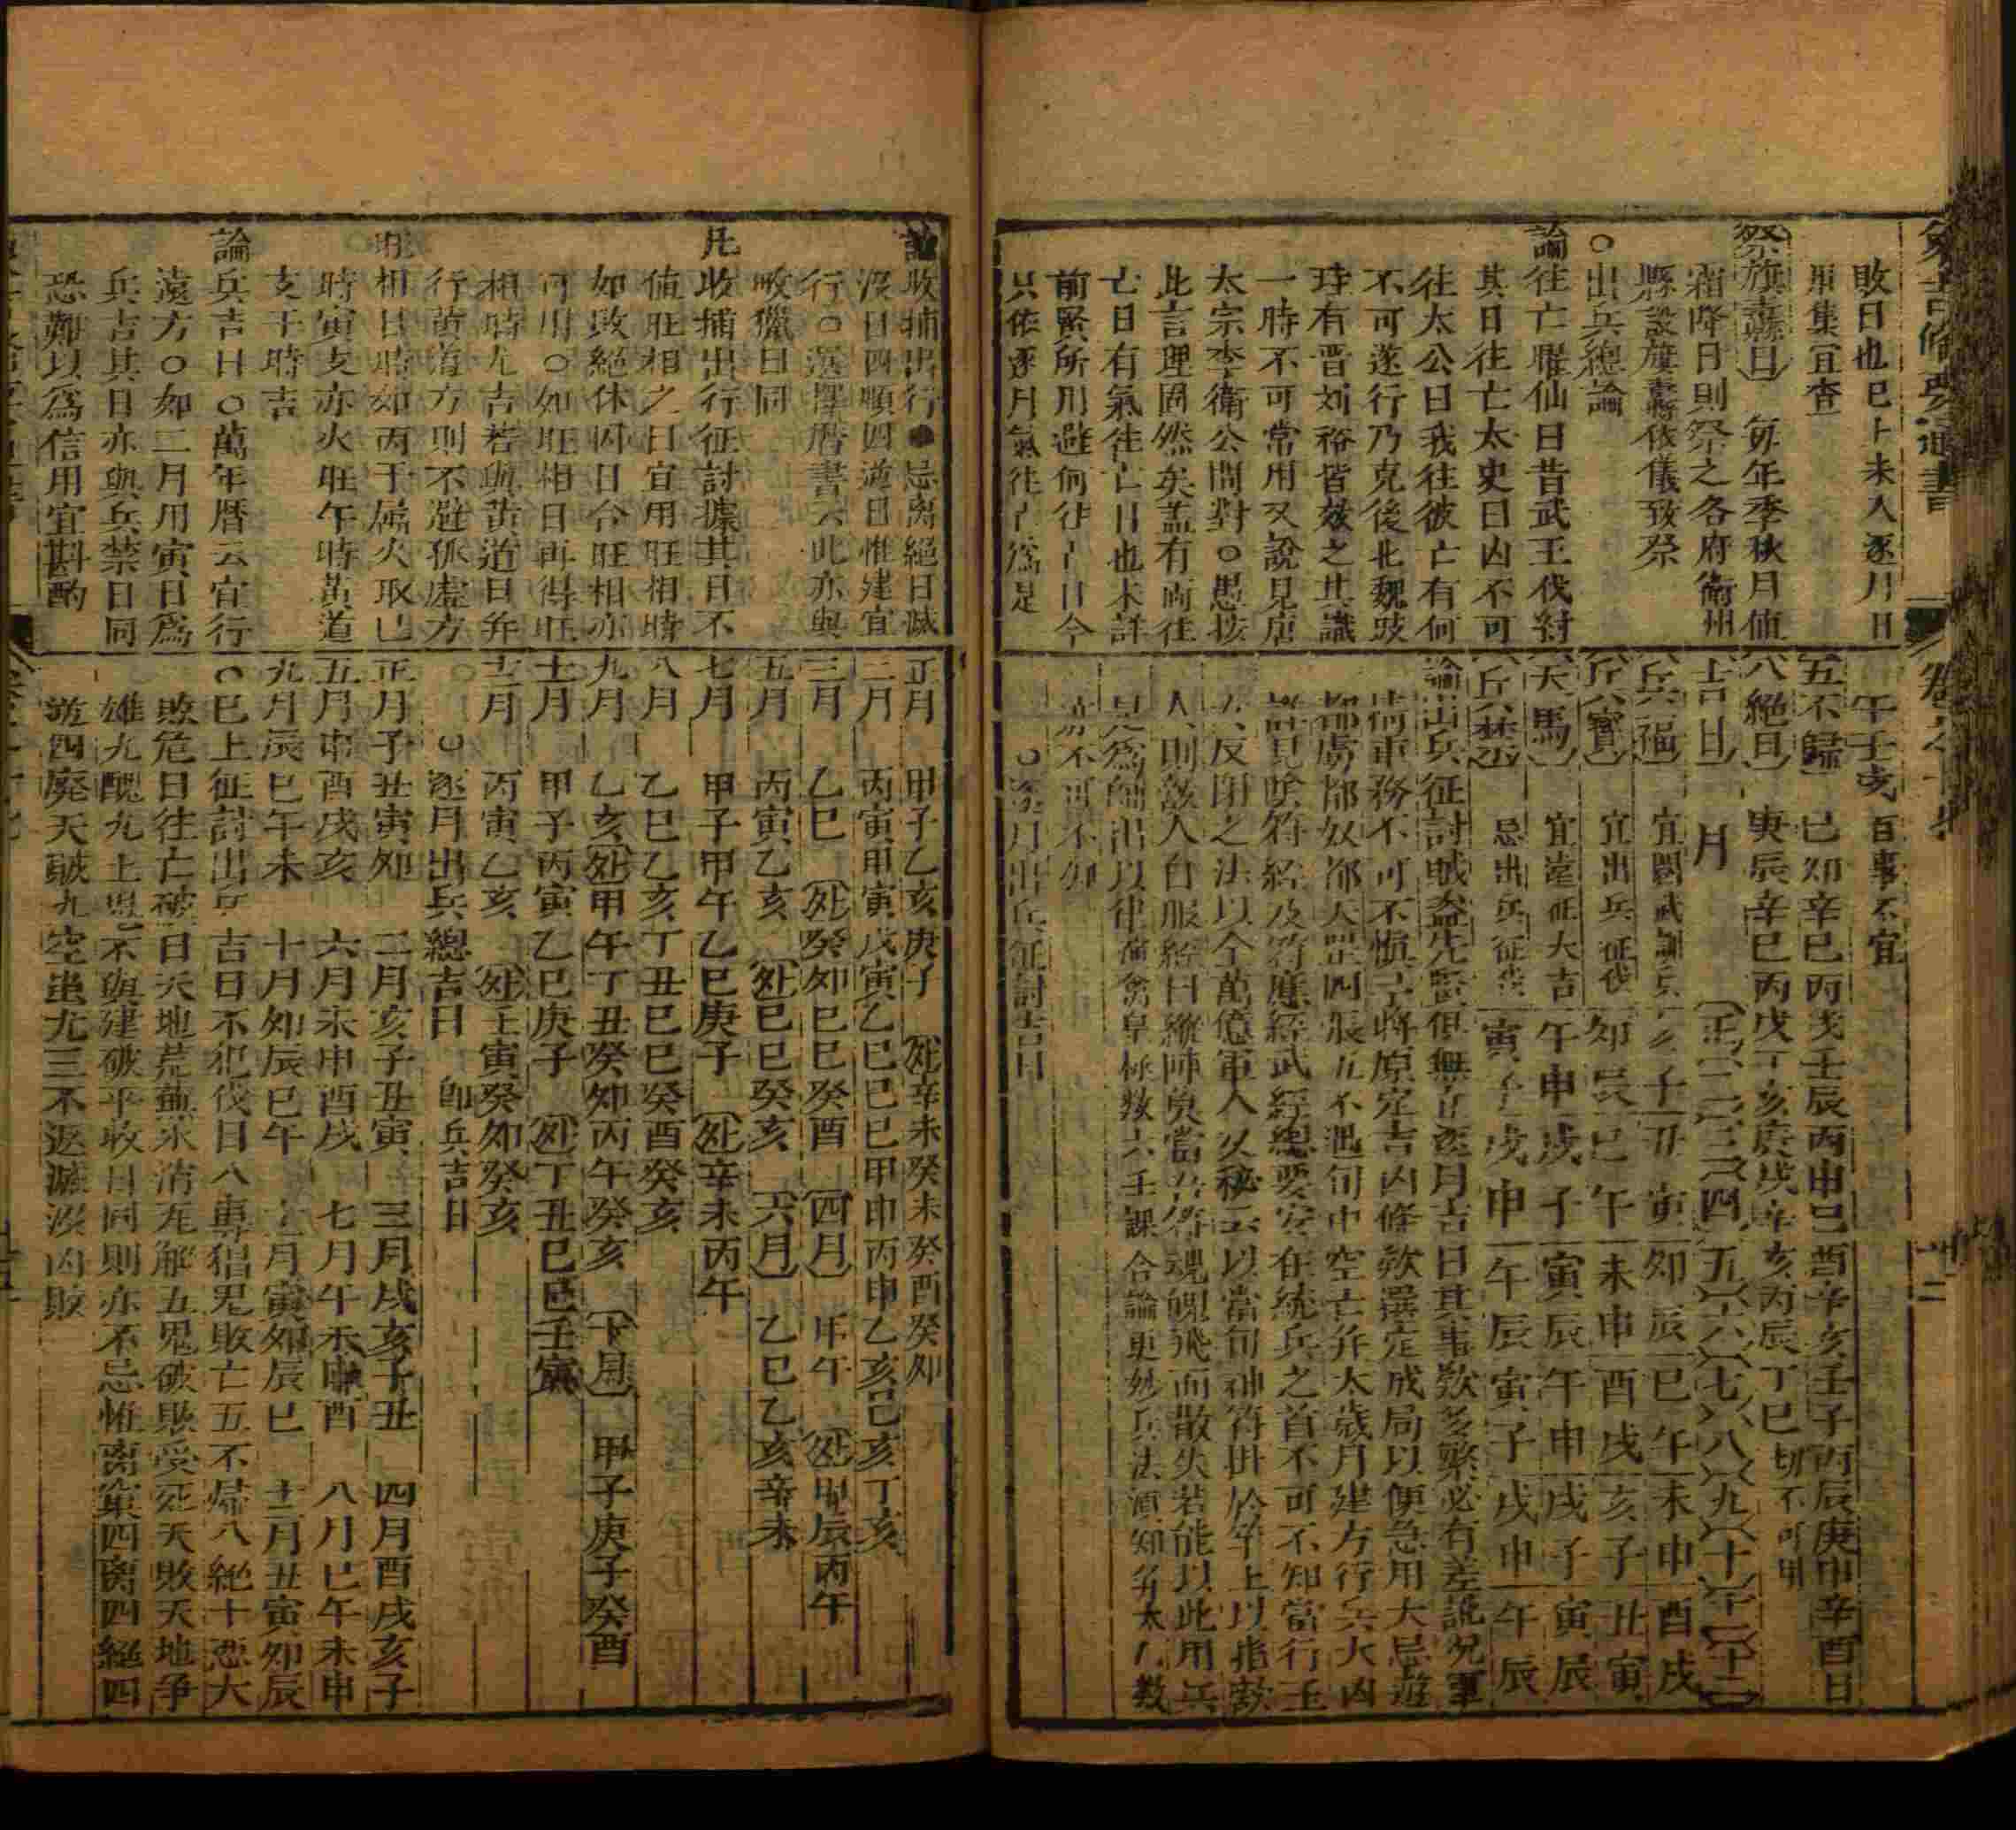 敗日也巳上未入逐月日
單集宜查
祭旗纛日 每年季秋月值
霜降日則祭之各府衛州
縣設旗纛依儀致祭
○出兵總論
論往亡臞仙曰昔武王伐紂
其日往亡太史曰凶不可
往太公曰我往彼亡有何
不可遂行乃克後北魏跂
珪有晋刘裕皆效之其識
一時不可常用又說見唐
太宗李衛公問對○愚按
此言理固然矣盖有兩往
亡日有氣往亡日也未詳
前賢所用避何往亡日今
只依逐月氣往亡為是
午壬戌 百事不宜
五不歸 己卯辛巳丙戌壬辰丙申己酉辛亥壬子丙辰庚申辛酉日
八絕日 庚辰辛巳丙戌丁亥庚戌辛亥丙辰丁巳切不可用
吉日 月 正 二 三 四 五 六 七 八 九 十 十一 十二
兵福 宜閱武訓兵 子丑寅卯辰巳午未申酉戌
兵寶 宜出兵征伐 卯辰巳午未申酉戌亥子丑寅
天馬 宜遠征大吉 午申戌子寅辰午申戌子寅辰
兵禁 忌出兵征 寅子戌申午辰寅子戌申午辰
論出兵征討賊盗先賢但無立逐月吉日其事欵多繁必有差訛况軍
情重務不可不慎 將原定吉凶條欵選定成局以便急用大忌遊
都虜都奴都天罡四張五不遇旬中空亡并太歲月建方行兵大凶
說見陰符經及符應經武經總要安在統兵之首不可不知當行玉
女反閉之法以全萬億軍人 秘云以當旬神符掛於竿上以指敵
人則敵人自服 魂魄飛而散失若能以此用兵
是為師出以律 六壬課合論更妙兵法須知
亦不可不知
○逐月出兵征討吉日
論收捕出行●忌离絕日滅
沒日四順四逆日惟建宜
行○選擇曆書云此亦與
畋獵日同
凡收捕出行征討據其日不
值旺相之日宜用旺相時
如敗絕休囚日合旺相亦
可用○如旺相日再得旺
相時尤吉若與黃道日并
行黃道方則不避孤虛方
旺相日時如丙干屬火取巳
時寅支亦火旺午時黃道
支干時吉
論兵吉日○萬年曆云宜行
遠方○如二月用寅日為
兵吉其日亦與兵禁日同
恐難以為信用宜斟酌
正月 甲子乙亥庚子 外辛未癸未癸酉癸卯
二月 丙寅甲寅戊寅乙巳己巳甲申丙申乙亥己亥丁亥
三月 乙巳 外癸卯己巳癸酉 四月 甲午 外甲辰丙午
五月 丙寅乙亥 外己巳癸亥 六月 乙巳乙亥辛未
七月 甲子甲午乙巳庚子 外辛未丙午
八月 乙巳乙亥丁丑己巳癸酉癸亥
九月 乙亥外甲午丁丑癸卯丙午癸亥 十月 甲子庚子癸酉
十一月 甲子丙寅乙巳庚子 外丁丑己巳壬寅
十二月 丙寅乙亥 外壬寅癸卯癸亥
○逐月出兵總吉日 卽兵吉日
正月子丑寅卯 二月亥子丑寅 三月戌亥子丑 四月酉戌亥子
五月申酉戌亥 六月未申酉戌 七月午未申酉 八月巳午未申
九月辰巳午未 十月卯辰巳午 十一月寅卯辰巳 十二月丑寅卯辰
○巳上征討出兵吉日不犯伐日八專猖鬼敗亡五不歸八絕十惡大
敗危日往亡破日天地荒蕪氷消瓦解五鬼破敗受死天敗天地争
雄九醜九土鬼不與建破平收日同則亦不忌惟离窠四离四絕四
逆四廢天賊九空蚩尤三不返滅沒凶敗
象吉備要通書
卷之十九